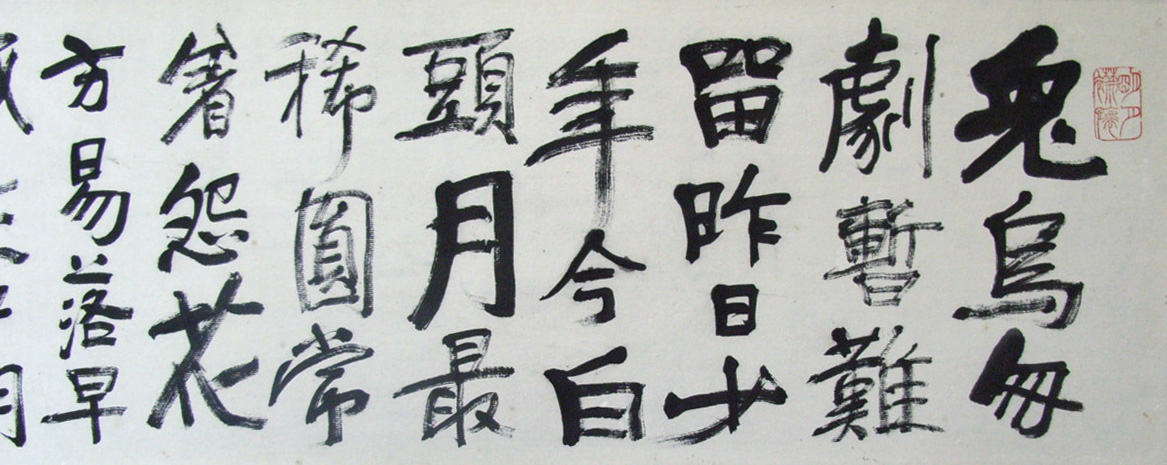 兔烏匆
劇暫難
留昨日少
年今白
頭月最
稀圓常
著怨花
方易落早